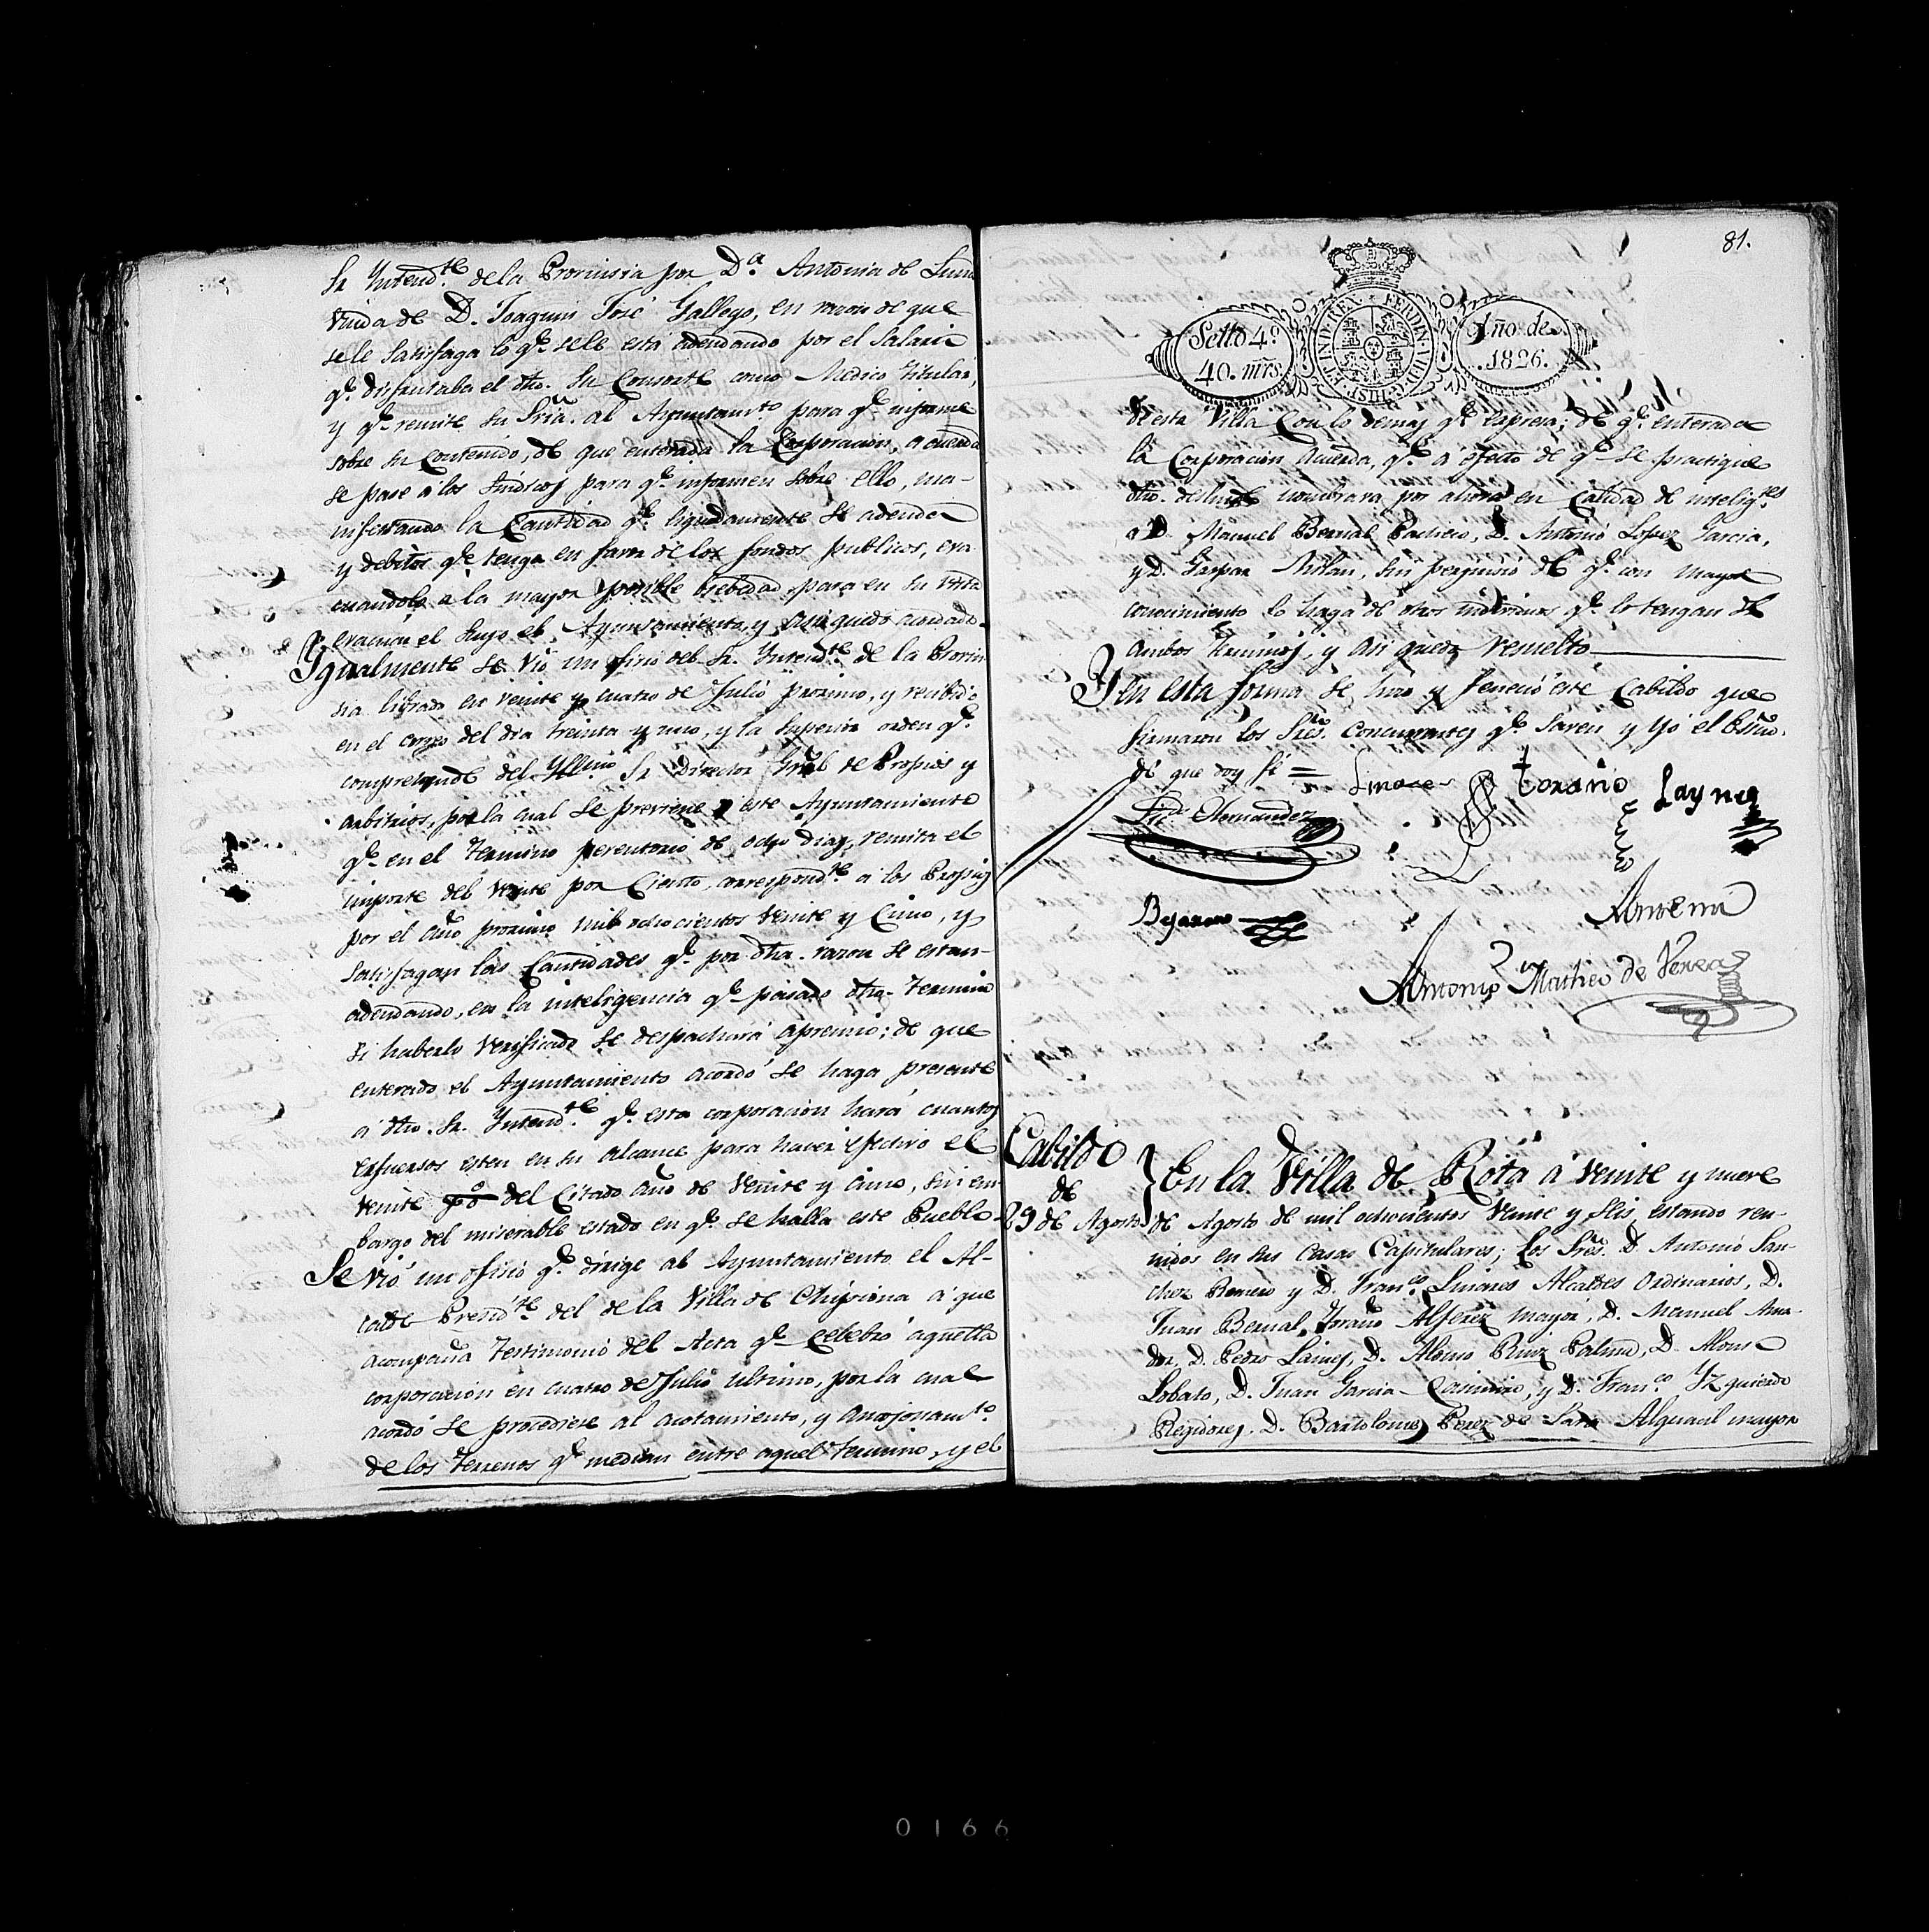 Sr Yntend.te de la Provinsia por D.a Antonia de Luna
viuda de D. Joaquin José Gallego, en razon de que
sele satisfaga lo q.e sele está adeudando por el Salario
q.e disfrutaba el dho. su Consorte como Medico titular,
y q.e remite su Sria. al Ayuntam.to para q.e informe
sobre su contenido, de que enterada la Corporacion, acuerda
se pase á los Sindicos para q.e informen sobre ello, ma-
nifestando la Cantidad q.e liquidamente se adeuda
y debitos q.e tenga en favor de los fondos publicos, eva
cuandolo a la mayor posible brebedad para en su vista
evacuar el suyo el Ayuntamiento, y asi quedó acordado.
Ygualmente se vió un ofisio del Sr. Yntend.te de la Provin
sia librado en veinte y cuatro de Julio proximo, y recibido
en el correo del dia treinta y uno, y la superior orden q.e
comprehende del Yllmo Sr Director Gral de Propios y
arbitrios, por la cual se previene á este Ayuntamiento
q.e en el termino perentorio de ocho dias, remita el
importe del veinte por Ciento, correspond.te a los Propios
por el año proximo mil ochocientos veinte y Cinco, y
satisfagan las Cantidades q.e por dha. razon se estan
adeudando, en la inteligencia q.e pasado dho. termino
si haberlo verificado se despachará apremio; de que
enterado el Ayuntamiento acordó se haga presente
á dho. Sr. Yntend.te q.e esta corporacion hará cuantos
esfuersos esten en su alcance para haser efectivo el
veinte p% del Citado año de veinte y cinco, sin em
bargo del miserable estado en q.e se halla este Pueblo
Se vió un ofisio q.e dirige al Ayuntamiento el Al-
calde Presid.te del de la Villa de Chipiona á que
acompaña testimonio del Acta q.e celebró aquella
corporacion en cuatro de Julio ultimo, por la cual
acordó se procediese al acotamiento, y amojonam.to
de los terrenos q.e median entre aquel termino, y el
81.
Sello 4.º
40. mrs.
HISP. ET IND. REX. FERDIN. VII. D. G.
Año de
1826.
de esta Villa Con lo demas q.e espresa; de q.e enterada
la Corporacion acuerda, q.e a efecto de q.e se practique
dho. deslinde nombrara por ahora en Calidad de intelig.tes
a D. Manuel Bernal Pacheco, D. Antonio Lopez Garcia,
y D. Gaspar Milan, sin perjuisio de q.e con mayor
conocimiento lo haga de otros individuos q.e lo tengan de
ambos terminos, y asi quedó resuelto
Y en esta forma se hizo y feneció este Cabildo que
firmaron los Sres. Concurrentes q.e saven y yo el Essno.
de que doy fé =
Linares
Toraño
Laynez
Fernandez
Bejarano
Antonio Matheo de Verea
Cabildo
de
29 de Agosto
En la Villa de Rota á veinte y nueve
de Agosto de mil ochocientos veinte y seis, estando reu-
nidos en sus Casas Capitulares; los Sres. D. Antonio San-
chez Romero y D. Fran.co Linares Alcaldes Ordinarios, D.
Juan Bernal Toraño Alferez mayor, D. Manuel Ama-
dor, D. Pedro Lainez, D. Alonso Ruiz Palma, D. Alonso
Lobato, D. Juan Garcia Casimiro, y D. Fran.co Yzquierdo
Regidores, D. Bartolome Perez de Lara Alguacil mayor
0166